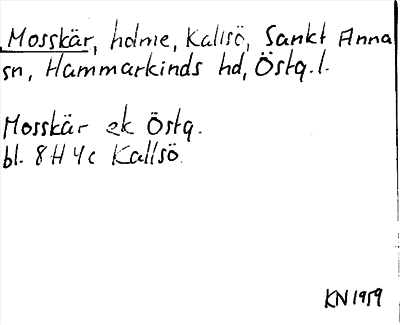 Mosskär, holme, Kallsö, Sankt Anna
sn, Hammarkinds hd, Östg.l.
Mosskär ek Östg.
bl. 8H 4c Kallsö
KN 1959